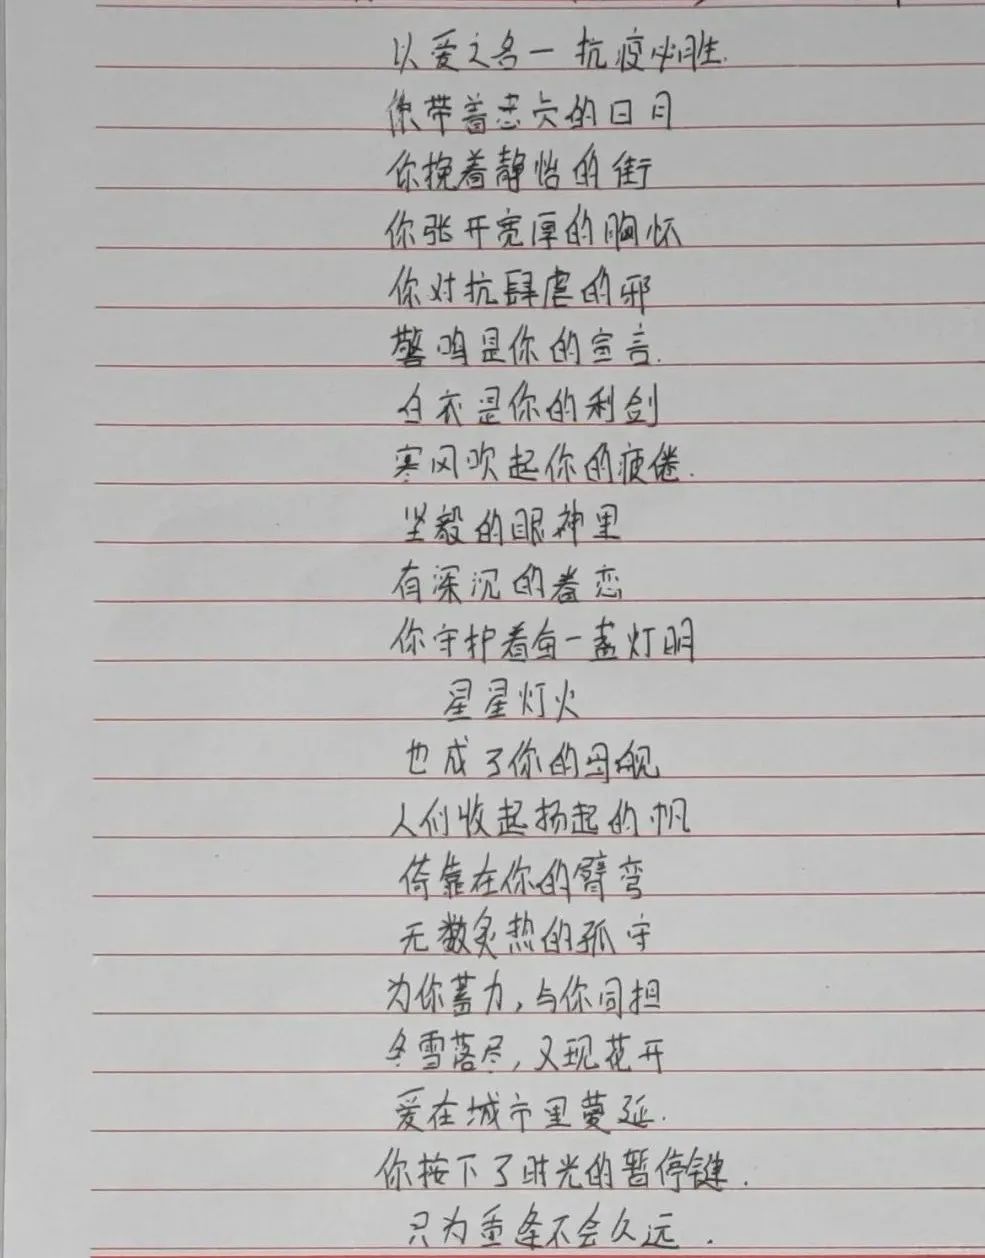 以爱之名一抗疫必胜.
你带着忠贞的日月
你挽着静怡的街
你张开宽厚的胸怀
你对抗肆虐的邪
警鸣是你的宣言.
白衣是你的利剑
寒风吹起你的疲倦.
坚毅的眼神里
有深沉的眷恋
你守护着每一盏灯明
星星灯火
也成了你的母舰
人们收起扬起的帆
倚靠在你的臂弯
无数炙热的孤守
为你蓄力,与你同担
冬雪落尽,又现花开
爱在城市里蔓延.
你按下了时光的暂停键.
只为重逢不会久远.